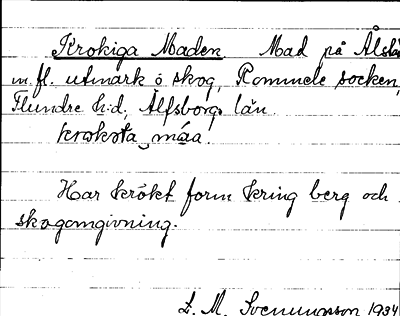 Krokiga Maden. Mad på
m.fl. utmark o skog, Rommele socken,
Flundre h:d, Älfsborgs län.
maa.
Har krökt form kring berg och
skogomgivning.
L. M. Svenungsson 1934